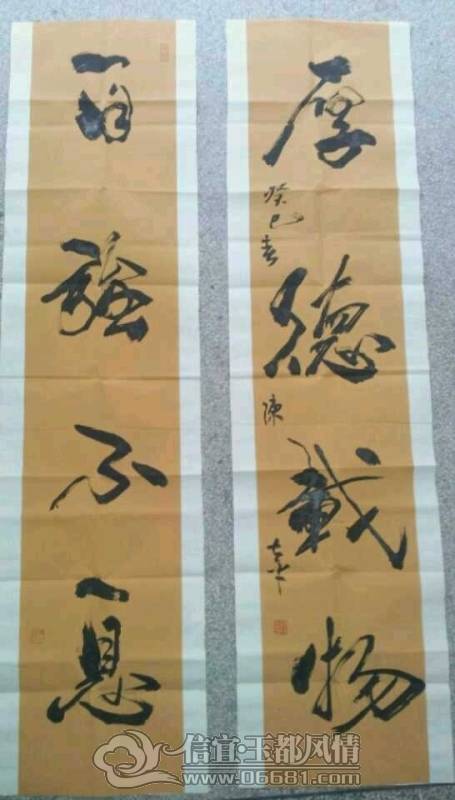 厚德載物
癸巳春
陳
自強不息
信宜·玉都风情
www.06681.com